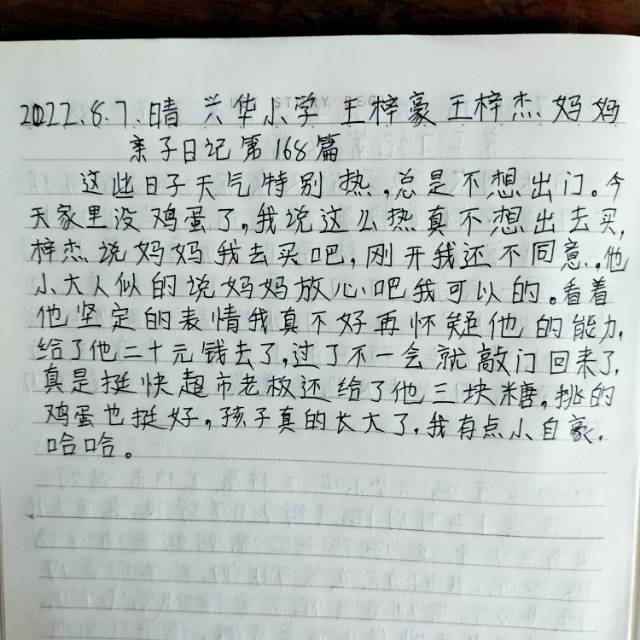 2022.8.7.晴 兴华小学 王梓豪王梓杰妈妈
亲子日记第168篇
这些日子天气特别热,总是不想出门。今
天家里没鸡蛋了,我说这么热真不想出去买,
梓杰说妈妈我去买吧,刚开我还不同意,他
小大人似的说妈妈放心吧我可以的。看着
他坚定的表情我真不好再怀疑他的能力,
给了他二十元钱去了,过了不一会就敲门回来了,
真是挺快超市老板还给了他三块糖,挑的
鸡蛋也挺好,孩子真的长大了,我有点小自豪,
哈哈。